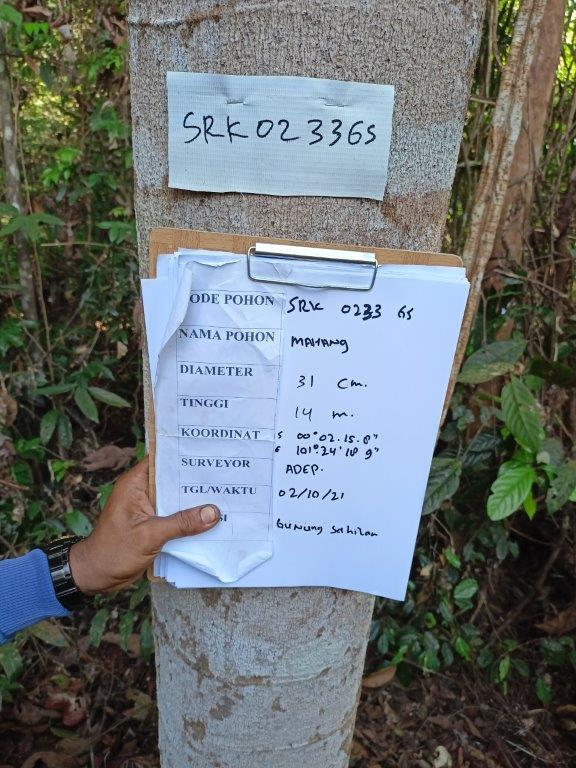 SRK 0233 GS
ODE POHON SRK 0233 GS
NAMA POHON MAHANG
DIAMETER 31 cm.
TINGGI 14 m.
KOORDINAT S 00°02.15.8"
E 101°24'18 9"
SURVEYOR ADEP.
TGL/WAKTU 02/10/21
SI Gunung Sahilan